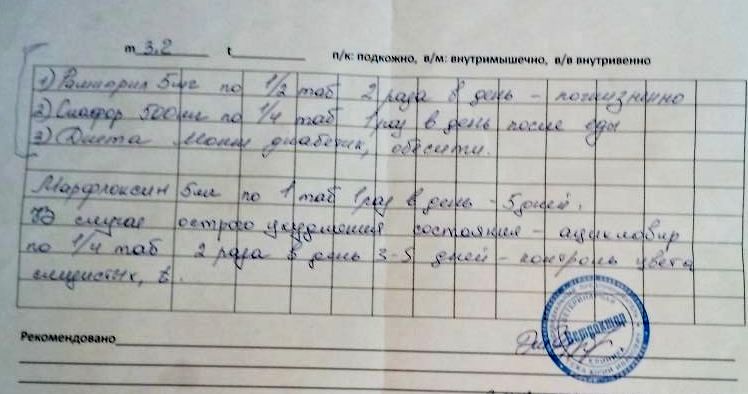 m 3,2 t п/к: подкожно, в/м: внутримышечно, в/в внутривенно
1) Рамиприл 5мг по 1/2 таб 2 раза в день - пожизненно
2) Сиафор 500мг по 1/4 таб 1 раз в день после еды
3) Диета Монж диабетик, обесити.
Марфлоксин 5мг по 1 таб 1 раз в день - 5 дней.
В случае острого ухудшения состояния - ацикловир
по 1/4 таб 2 раза в день 3-5 дней - контроль цвета
слизистых, t.
Рекомендовано
Ветдоктор